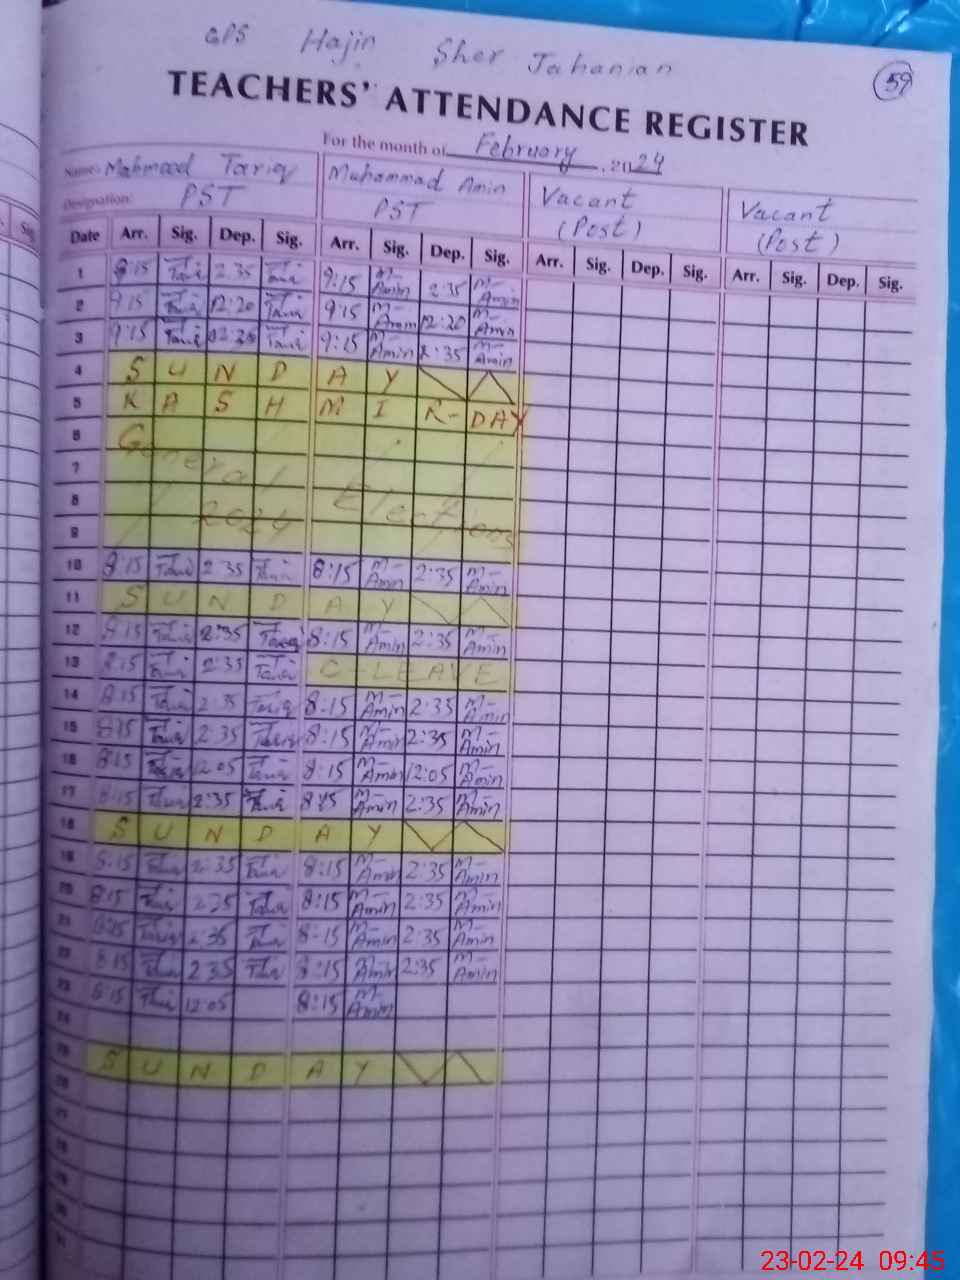 GPS Hajin Sher Jahanian
59
TEACHERS' ATTENDANCE REGISTER
For the month of February, 2024
Name: Mahmood Tariq Muhammad Amin Vacant Vacant
Designation: PST PST (Post) (Post)
Date Arr. Sig. Dep. Sig. Arr. Sig. Dep. Sig. Arr. Sig. Dep. Sig. Arr. Sig. Dep. Sig.
1 2:35 9:15 M-Amin 2:35 M-Amin
2 9:15 12:20 9:15 M-Amin 12:20 M-Amin
3 9:15 9:15 M-Amin 2:35 M-Amin
4 S U N D A Y
5 K A S H M I R - DAY
6 General
7
8 2024 Elections
9
10 8:15 2:35 8:15 M-Amin 2:35 M-Amin
11 S U N D A Y
12 8:15 2:35 8:15 M-Amin 2:35 M-Amin
13 8:15 2:35 C-LEAVE
14 8:15 2:35 8:15 M-Amin 2:35 M-Amin
15 8:15 2:35 8:15 M-Amin 2:35 M-Amin
16 8:15 12:05 8:15 M-Amin 12:05 M-Amin
17 8:15 2:35 8:15 M-Amin 2:35 M-Amin
18 S U N D A Y
19 8:15 2:35 8:15 M-Amin 2:35 M-Amin
20 8:15 2:35 8:15 M-Amin 2:35 M-Amin
21 8:15 2:35 8:15 M-Amin 2:35 M-Amin
22 8:15 2:35 8:15 M-Amin 2:35 M-Amin
23 8:15 12:05 8:15 M-Amin
24
25 S U N D A Y
26
27
28
29
30
31
23-02-24 09:45